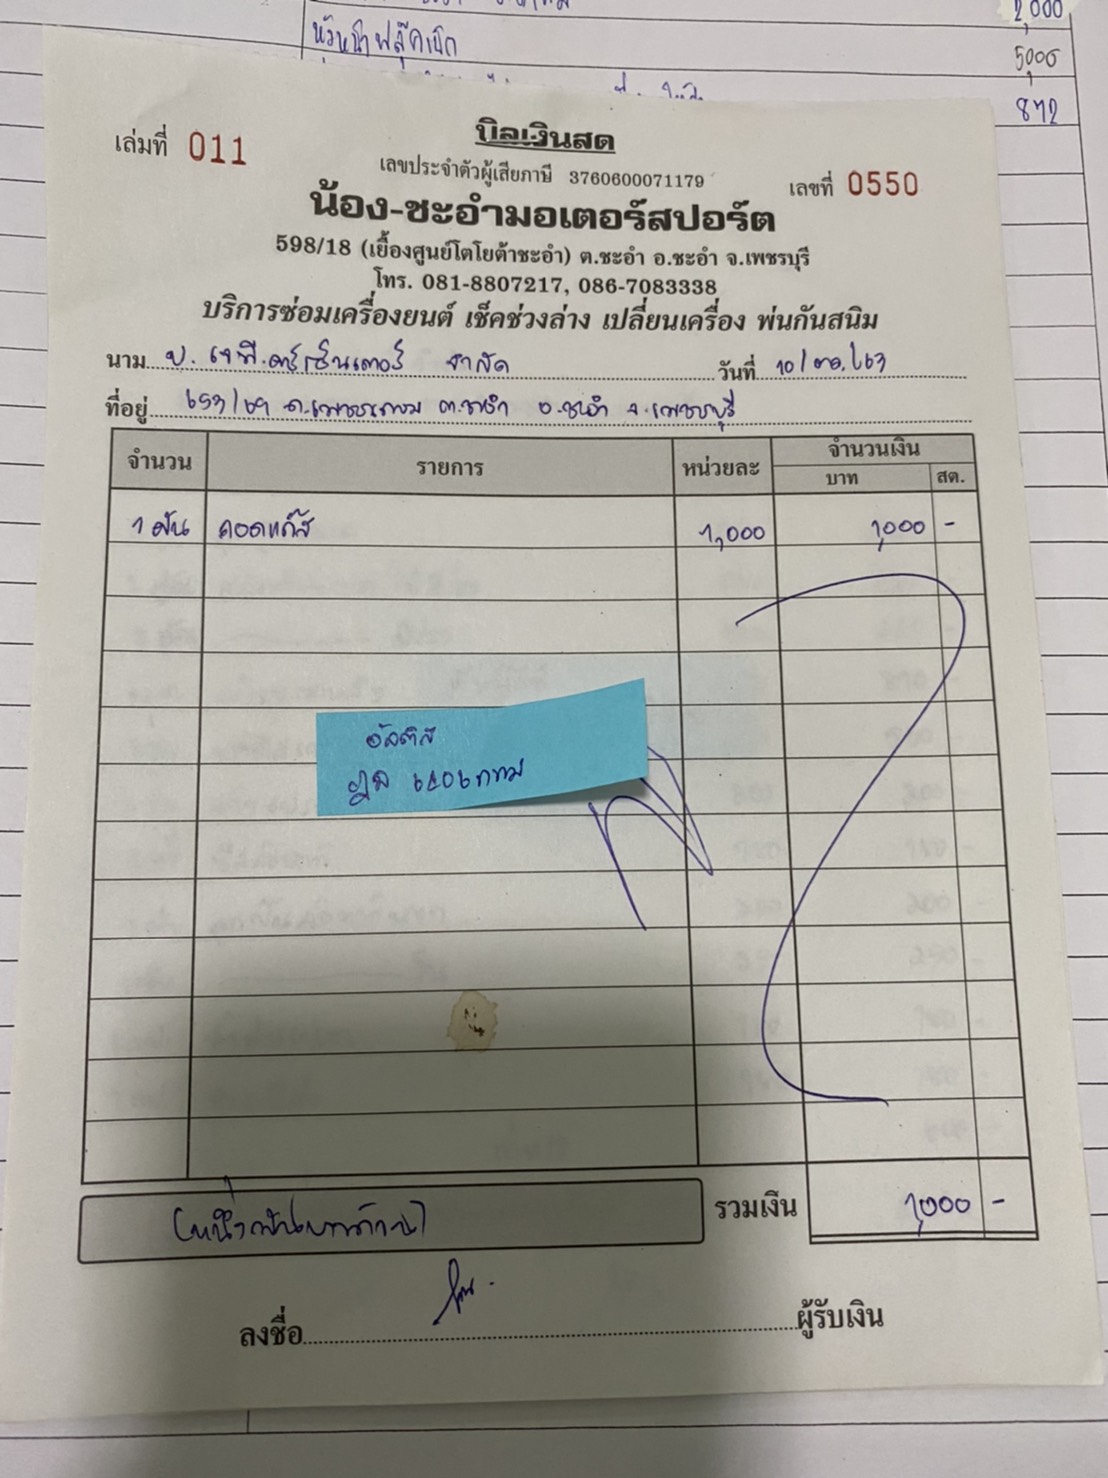 2,000
5,000
872
บิลเงินสด
เล่มที่ 011
เลขประจำตัวผู้เสียภาษี 3760600071179
เลขที่ 0550
น้อง-ชะอำมอเตอร์สปอร์ต
598/18 (เยื้องศูนย์โตโยต้าชะอำ) ต.ชะอำ อ.ชะอำ จ.เพชรบุรี
โทร. 081-8807217, 086-7083338
บริการซ่อมเครื่องยนต์ เช็คช่วงล่าง เปลี่ยนเครื่อง พ่นกันสนิม
นาม บ. เจพี.คาร์เซ็นเตอร์ จำกัด วันที่ 10/ตค./63
ที่อยู่ ถ.เพชรเกษม ต.ชะอำ อ.ชะอำ จ.เพชรบุรี
จำนวน รายการ หน่วยละ จำนวนเงิน
บาท สต.
1 คัน ถอดแก๊ส 1,000 1,000 -
อัลติส
(หนึ่งพันบาทถ้วน) รวมเงิน 1,000 -
ลงชื่อ ผู้รับเงิน